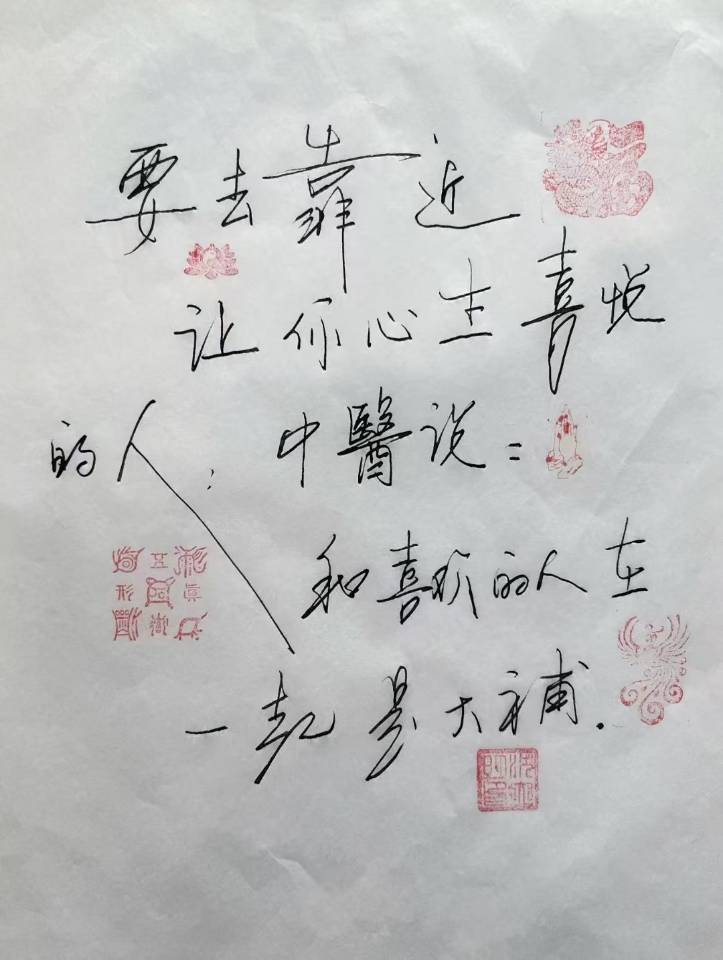 要去靠近
让你心生喜悦
的人：中醫说：
和喜欢的人在
一起是大補.